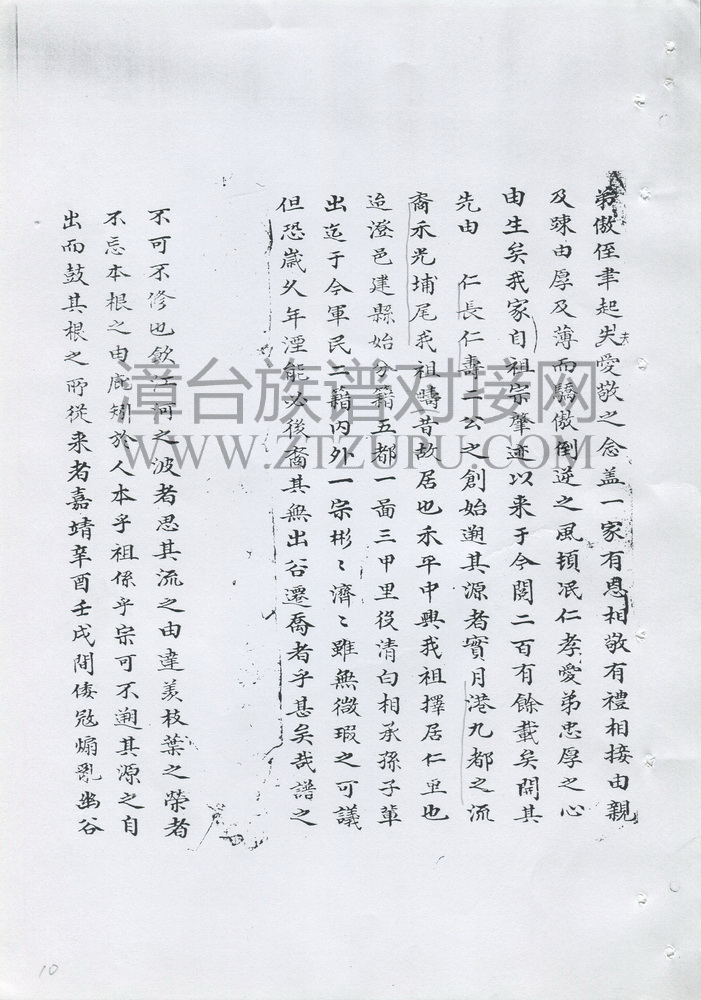 弟傲侄聿起失愛敬之念盖一家有恩相敬有禮相接由親
夫
及踈由厚及薄而驕傲倒逆之風頓泯仁孝愛弟忠厚之心
由生矣我家自祖宗肇迹以来于今閱二百有餘載矣閞其
先由 仁長仁壽二公之創始遡其源者實月港九都之流
裔禾光埔尾我祖疇昔故居也禾平中興我祖擇居仁里也
迨澄邑建縣始分籍五都一啚三甲里役清白相承孫子軰
出迄于今軍民二籍内外一宗彬〻濟〻雖無微瑕之可議
但恐歲久年湮能必後裔其無出谷遷喬者乎甚矣哉譜之
不可不修也飲江河之波者思其流之由達羡枝葉之榮者
不忘本根之由庇矧於人本乎祖係乎宗可不遡其源之自
出而鼓其根之所從来者嘉靖辛酉壬戌閒倭冦煽亂幽谷
漳台族谱对接网
WWW.ZTZUPU.COM
10